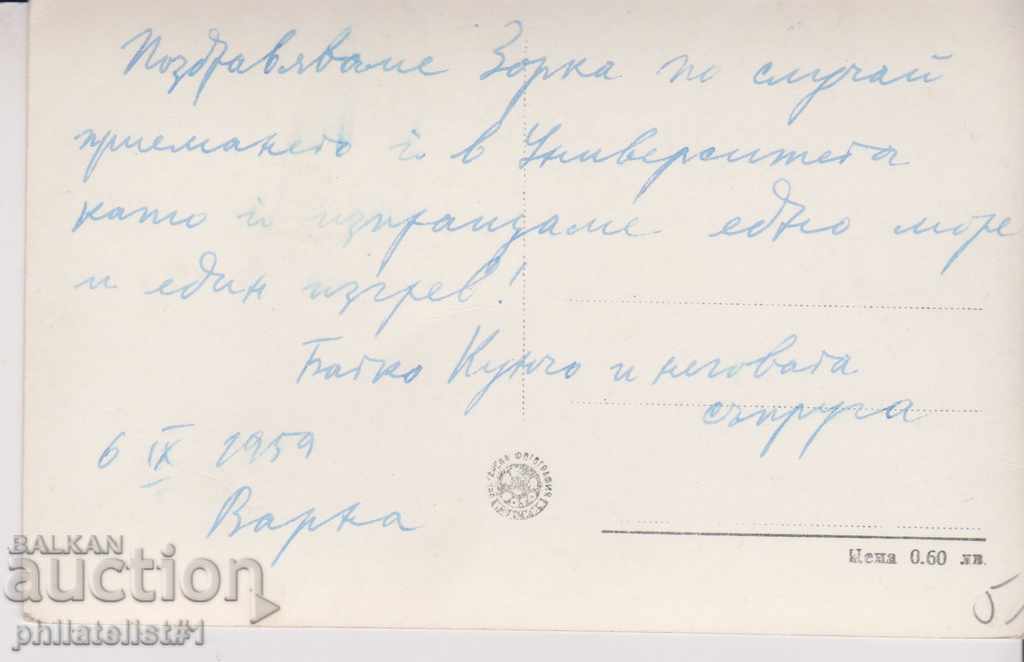 Поздравяваме Зорка по случай
приемането ѝ в Университета
като ѝ изпращаме едно море
и един изгрев!
Батко Кунчо и неговата
съпруга
6 IX 1959
Варна
Цена 0.60 лв.
51
BALKAN
auction
philatelist#1